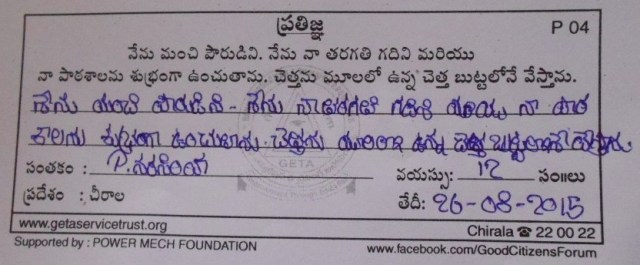 ప్రతిజ్ఞ P 04
నేను మంచి పౌరుడిని. నేను నా తరగతి గదిని మరియు
నా పాఠశాలను శుభ్రంగా ఉంచుతాను. చెత్తను మూలలో ఉన్న చెత్త బుట్టలోనే వేస్తాను.
నేను మంచి పౌరుడిని - నేను నా తరగతి గదిని మరియు నా పాఠ
శాలను శుభ్రంగా ఉంచుతాను. చెత్తను మూలలో ఉన్న చెత్త బుట్టలోనే వేస్తాను.
GETA
సంతకం : P. వయస్సు: 12 సం॥లు
ప్రదేశం : చీరాల తేదీ: 26-08-2015
www.getaservicetrust.org Chirala ☎ 22 00 22
Supported by : POWER MECH FOUNDATION www.facebook.com/GoodCitizensForum